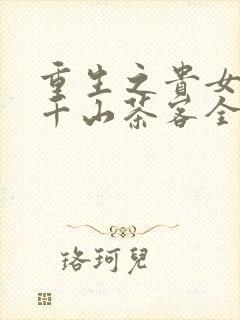 重生之貴女
千山茶客全
珞珂兒